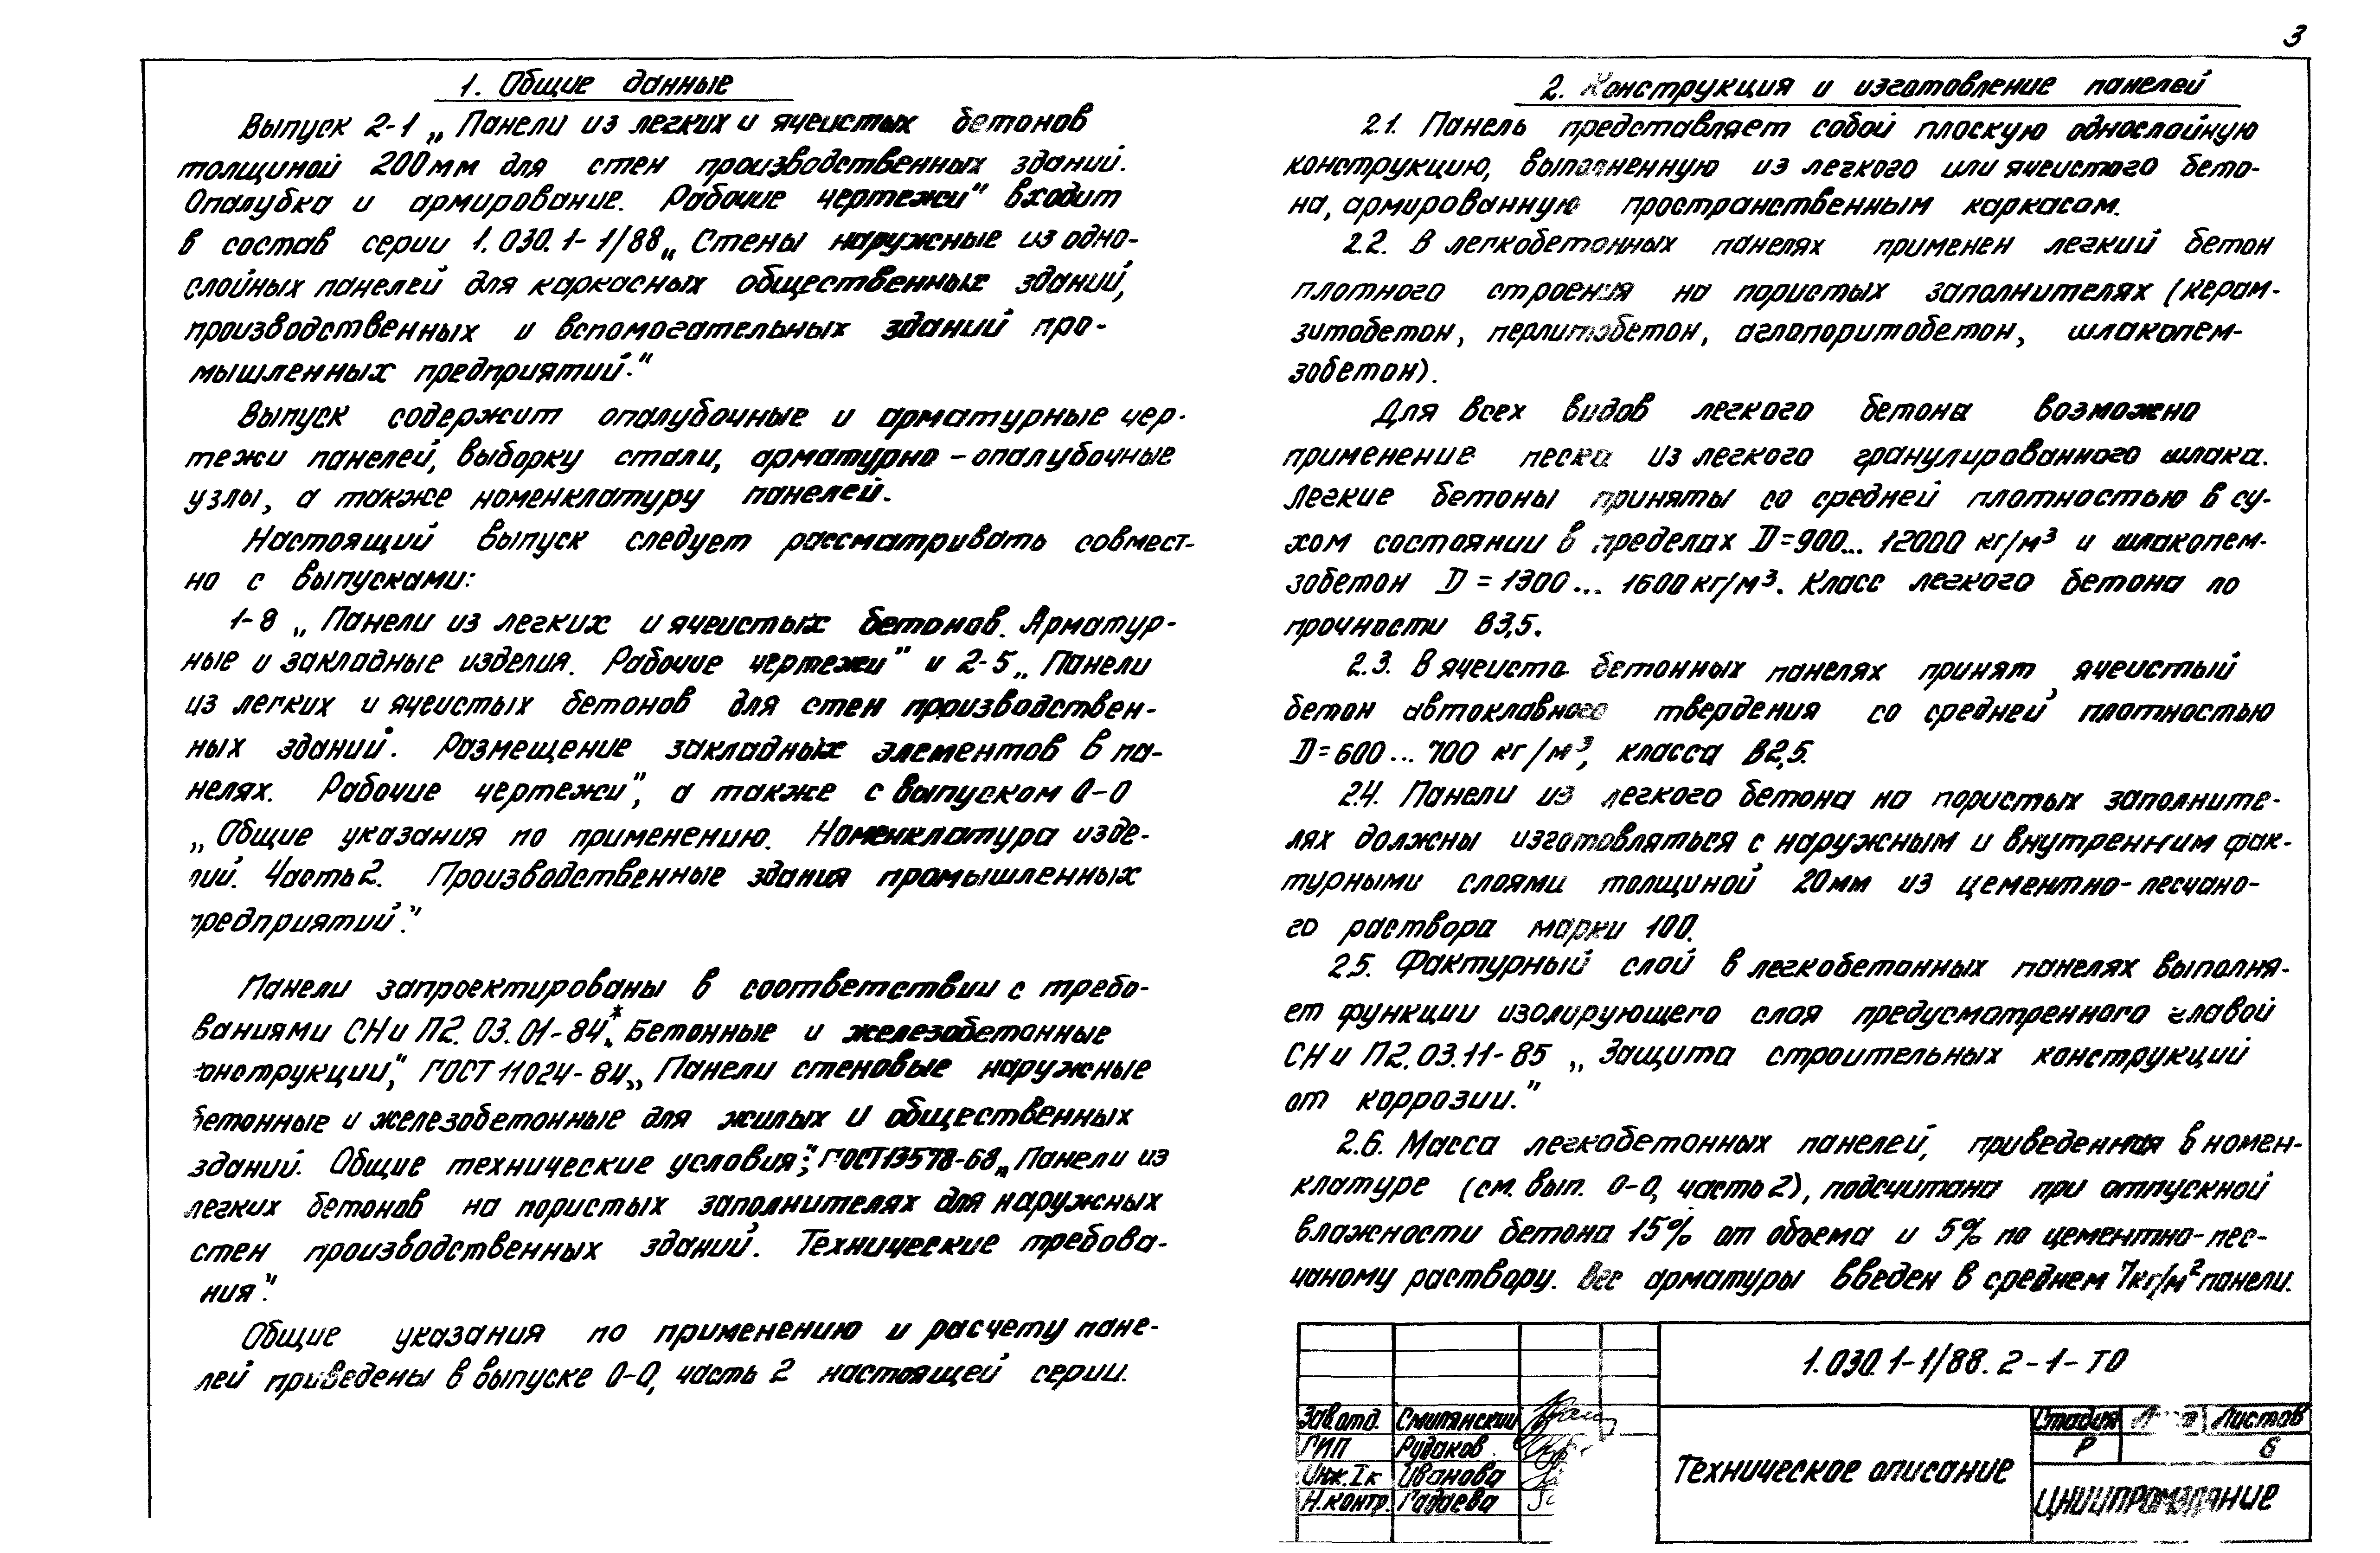 3
1. Общие данные
Выпуск 2-1 „Панели из легких и ячеистых бетонов
толщиной 200мм для стен производственных зданий.
Опалубка и армирование. Рабочие чертежи" входит
в состав серии 1.030.1-1/88 „Стены наружные из одно-
слойных панелей для каркасных общественных зданий,
производственных и вспомогательных зданий про-
мышленных предприятий."
Выпуск содержит опалубочные и арматурные чер-
тежи панелей, выборку стали, арматурно-опалубочные
узлы, а также номенклатуру панелей.
Настоящий выпуск следует рассматривать совмест-
но с выпусками:
1-8 „Панели из легких и ячеистых бетонов. Арматур-
ные и закладные изделия. Рабочие чертежи" и 2-5 „Панели
из легких и ячеистых бетонов для стен производствен-
ных зданий. Размещение закладных элементов в па-
нелях. Рабочие чертежи", а также с выпуском 0-0
„Общие указания по применению. Номенклатура изде-
лий. Часть 2. Производственные здания промышленных
предприятий."
Панели запроектированы в соответствии с требо-
ваниями СНиП 2.03.01-84* „Бетонные и железобетонные
конструкции", ГОСТ 11024-84 „Панели стеновые наружные
бетонные и железобетонные для жилых и общественных
зданий. Общие технические условия"; ГОСТ 13578-68 „Панели из
легких бетонов на пористых заполнителях для наружных
стен производственных зданий. Технические требова-
ния".
Общие указания по применению и расчету пане-
лей приведены в выпуске 0-0, часть 2 настоящей серии.
2. Конструкция и изготовление панелей
2.1. Панель представляет собой плоскую однослойную
конструкцию, выполненную из легкого или ячеистого бето-
на, армированную пространственным каркасом.
2.2. В легкобетонных панелях применен легкий бетон
плотного строения на пористых заполнителях (керам-
зитобетон, перлитобетон, аглопоритобетон, шлакопем-
зобетон).
Для всех видов легкого бетона возможно
применение песка из легкого гранулированного шлака.
Легкие бетоны приняты со средней плотностью в су-
хом состоянии в пределах D=900... 12000 кг/м³ и шлакопем-
зобетон D = 1300... 1600 кг/м³. Класс легкого бетона по
прочности В3,5.
2.3. В ячеисто бетонных панелях принят ячеистый
бетон автоклавного твердения со средней плотностью
D=600... 700 кг/м³, класса В2,5.
2.4. Панели из легкого бетона на пористых заполните-
лях должны изготовляться с наружным и внутренним фак-
турными слоями толщиной 20мм из цементно-песчано-
го раствора марки 100.
2.5. Фактурный слой в легкобетонных панелях выполня-
ет функции изолирующего слоя предусмотренного главой
СНиП 2.03.11-85 „Защита строительных конструкций
от коррозии."
2.6. Масса легкобетонных панелей, приведенная в номен-
клатуре (см. вып. 0-0, часть 2), подсчитана при отпускной
влажности бетона 15% от объема и 5% по цементно-пес-
чаному раствору. Вес арматуры введен в среднем 7кг/м² панели.
1.030.1-1/88. 2-1-ТО
Зав.отд. Смилянский
ГИП Рудаков
Инж.Iк Иванова
Н.контр. Гадаева
Техническое описание
Стадия Листов
Р 6
ЦНИИПРОМЗДАНИЕ